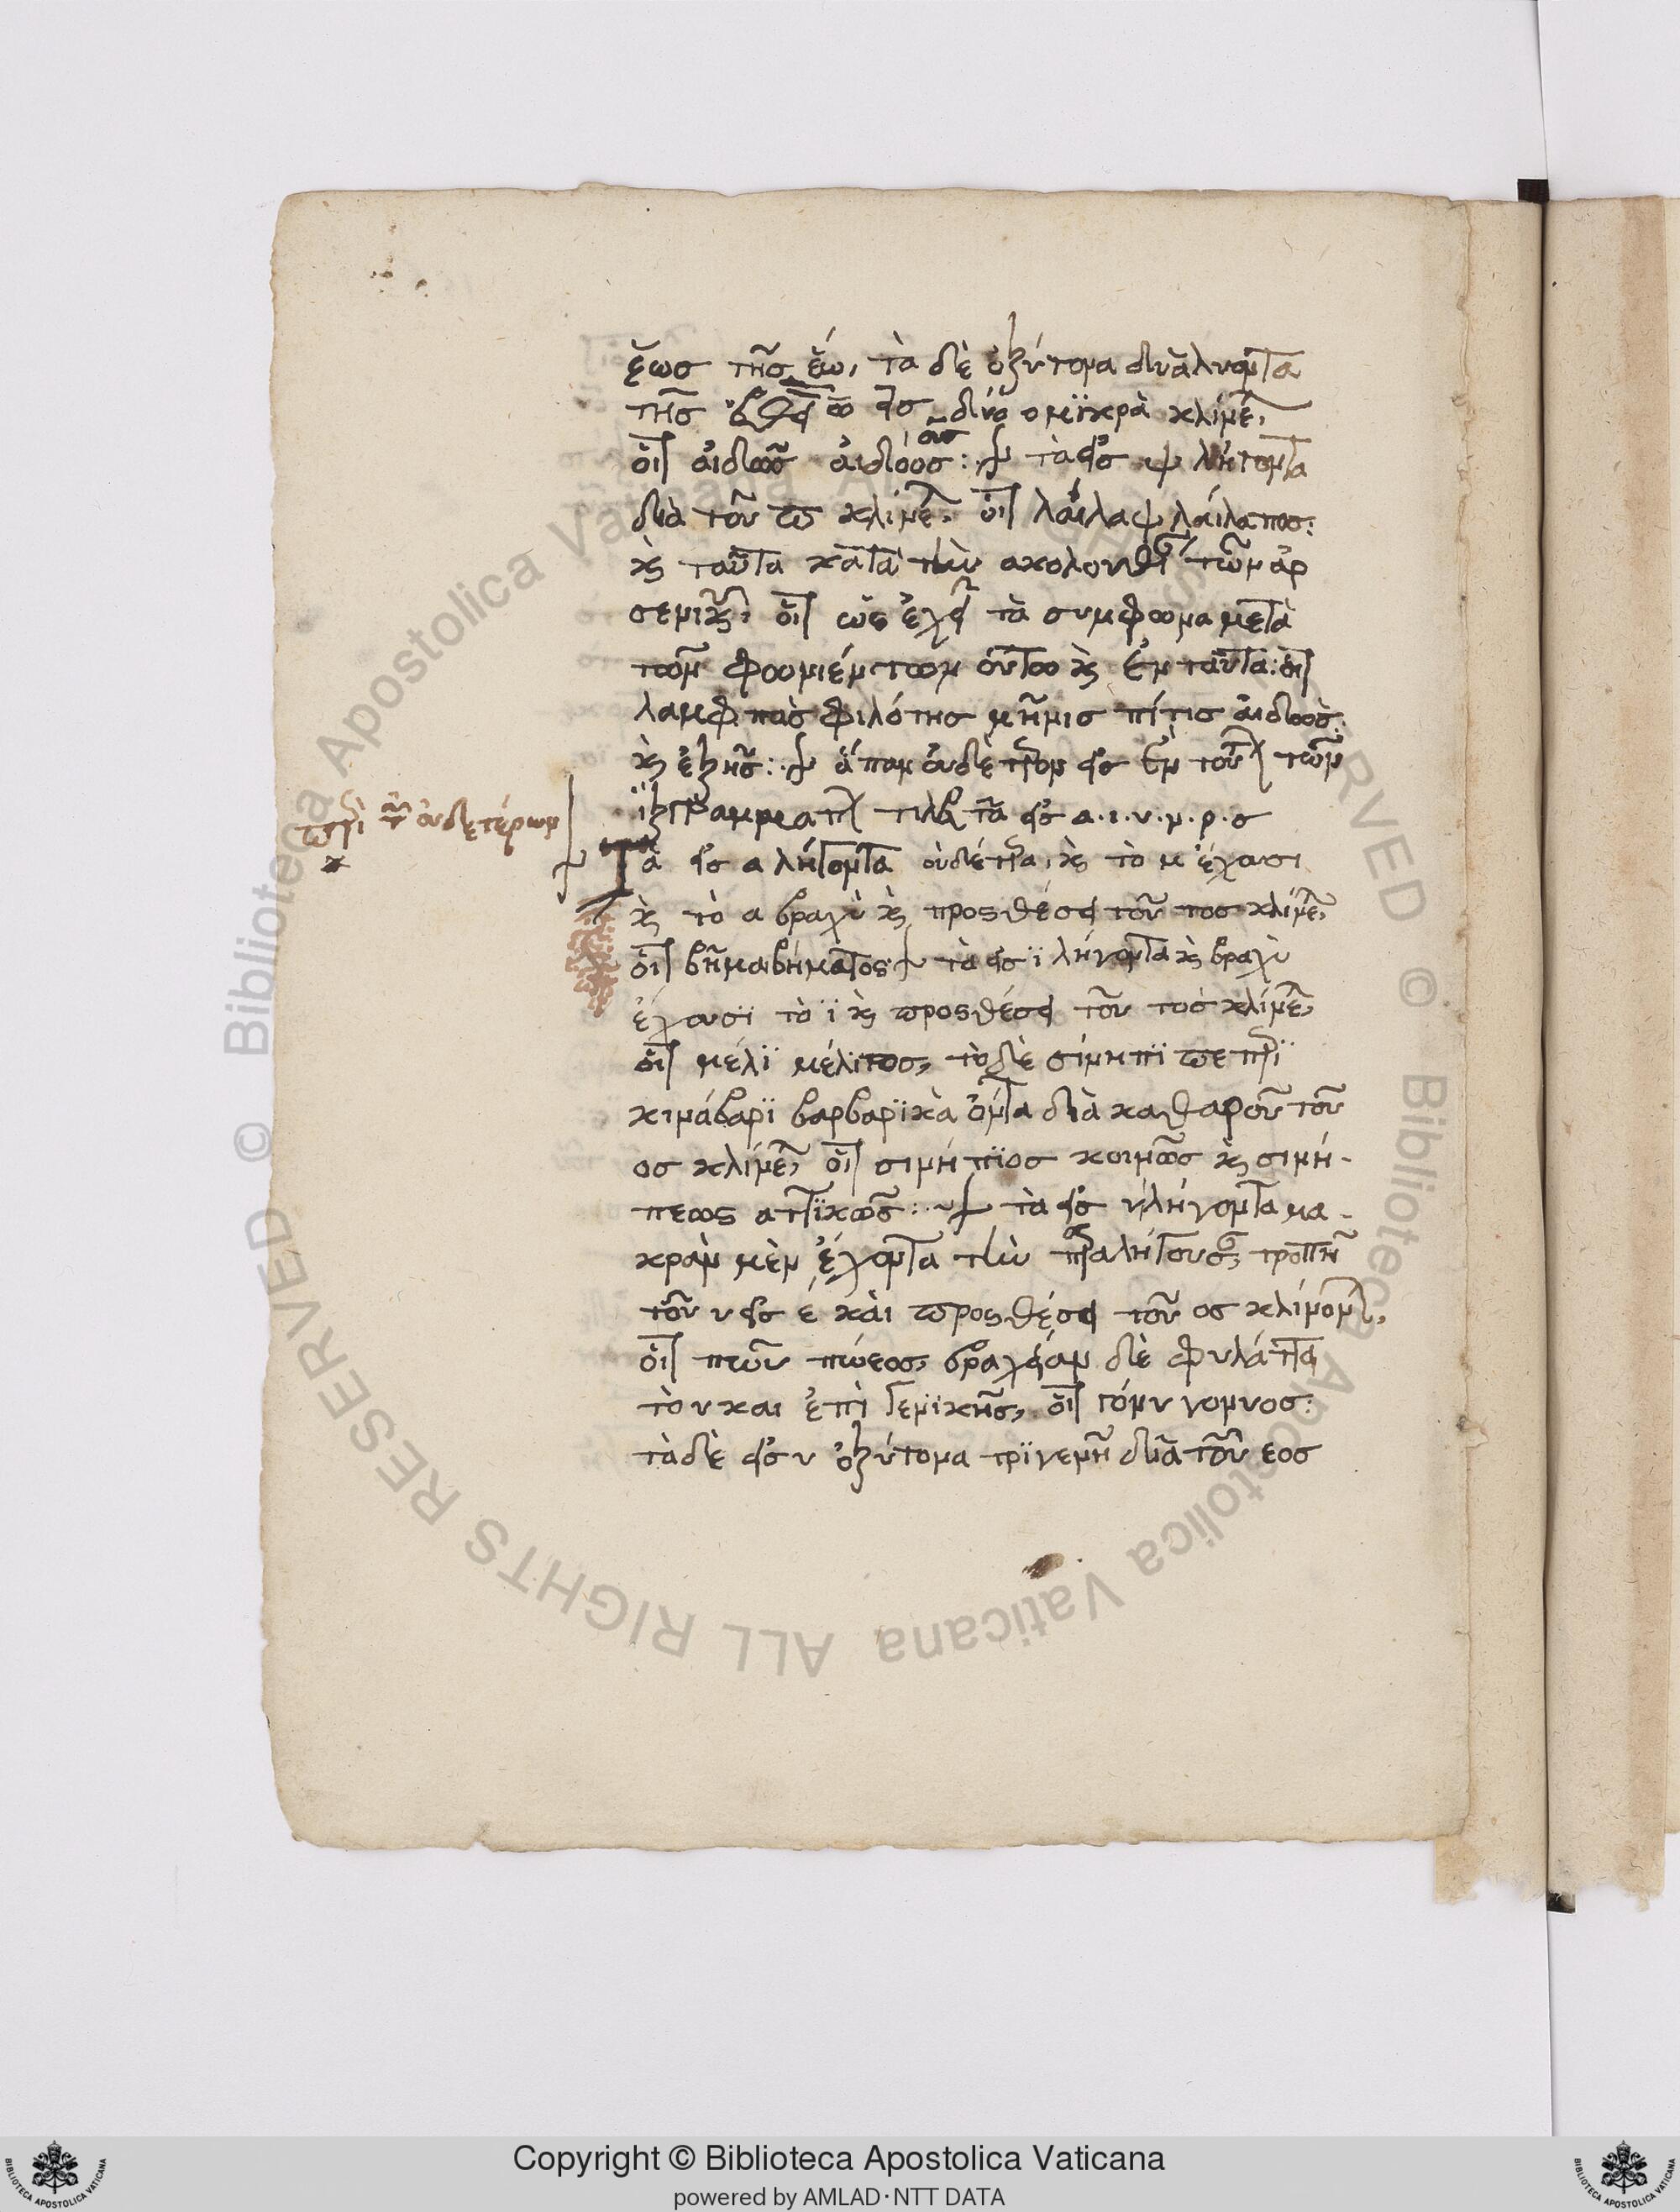 ἕως τῆς ἕω, τὰ δὲ ὀξύτονα διὰ λυομτα
τῆς ω εἰς δύο ο μϊκρὰ κλίνε,
οἷ αἰδὼς αἰδόος: τὰ εἰς ψ λήγοντα
διὰ τοῦ π κλίνε, οἷ λαίλαψ λαίλαπος:
κ ταῦτα κατὰ τὴν ακολουθί τῶν ἀρ
σενικ, οἷ ὡς ἔχει τὰ συμφωνα μετὰ
τῶν φωνιέντων οὕτω κ ἐν ταῦτα: οἷ
λαμπὰς φιλότης μῆνις πίτις αἰδοὸς:
κ ἑξῆς: ἅπαν οὐδέτερον εἰς ἓν τοῦ τῶν
ἓξ γραμματ τελευτᾶ εἰς α.ι.ν.υ.ρ.ς
περὶ τῶν οὐδετέρων
Τὰ εἰς α λήγοντα οὐδέτερα, κ τὸ μ ἔχουσι
κ τὸ α βραχὺ κ προςθέσει τοῦ τος κλίνε,
οἷ βῆμα βήματος τὰ εἰς ϊ λήγοντα κ βραχὺ
ἔχουσϊ τὸ ϊ κ προςθέσει τοῦ τος κλίνε,
οἷ μέλϊ μέλιτος, τὸ δὲ σίνηπϊ πεπερϊ
κινάβαρϊ βαρβαρϊκὰ ὄντα διὰ καθαροῦ τοῦ
ος κλίνε, οἷ σινήπϊος κοινῶς κ σινή-
πεως αττϊκῶς: τὰ εἰς υ λήγοντα μα-
κρὰν μὲν ἔχοντα τὴν παραλήγουσ, τροπῆ
τοῦ υ εἰς ε καὶ προςθέσει τοῦ ος κλίνον,
οἷ πῶυ πώεος, βραχεῖαν δὲ φυλάττει
τὸ υ και ἐπὶ γενϊκῆς, οἷ γόνυ γονυος:
τὰ δὲ εἰς υ ὀξύτονα τρϊγενῆ διὰ τοῦ εος
Copyright © Biblioteca Apostolica Vaticana
powered by AMLAD·NTT DATA
© Biblioteca Apostolica Vaticana ALL RIGHTS RESERVED